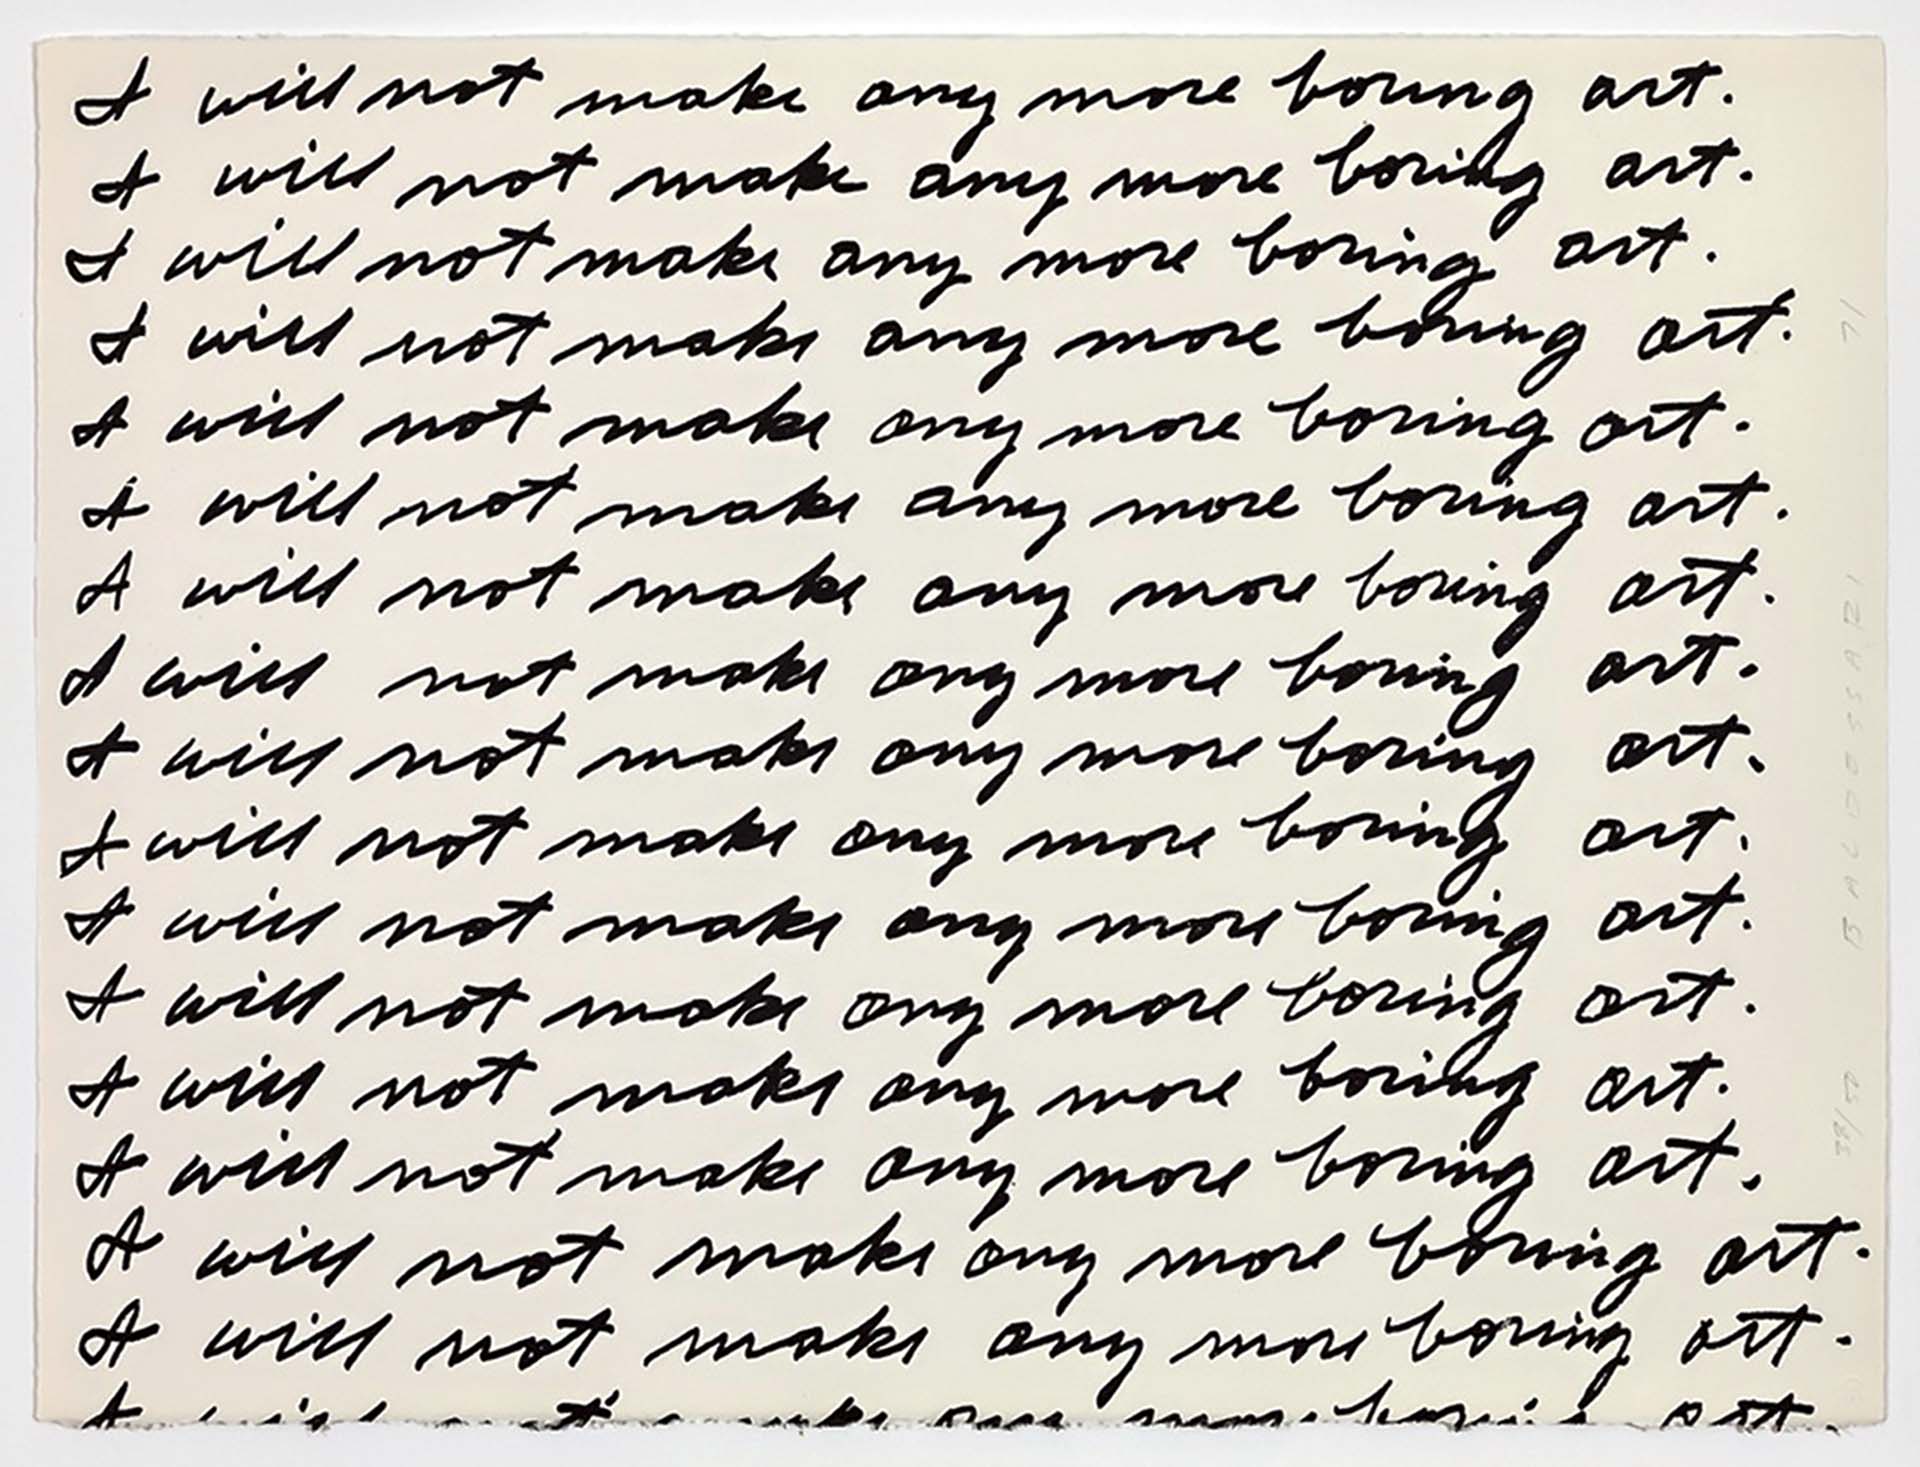 I will not make any more boring art.
I will not make any more boring art.
I will not make any more boring art.
I will not make any more boring art.
I will not make any more boring art.
I will not make any more boring art.
I will not make any more boring art.
I will not make any more boring art.
I will not make any more boring art.
I will not make any more boring art.
I will not make any more boring art.
I will not make any more boring art.
I will not make any more boring art.
I will not make any more boring art.
I will not make any more boring art.
I will not make any more boring art.
I will not make any more boring art.
38/50 BALDESSARI 71